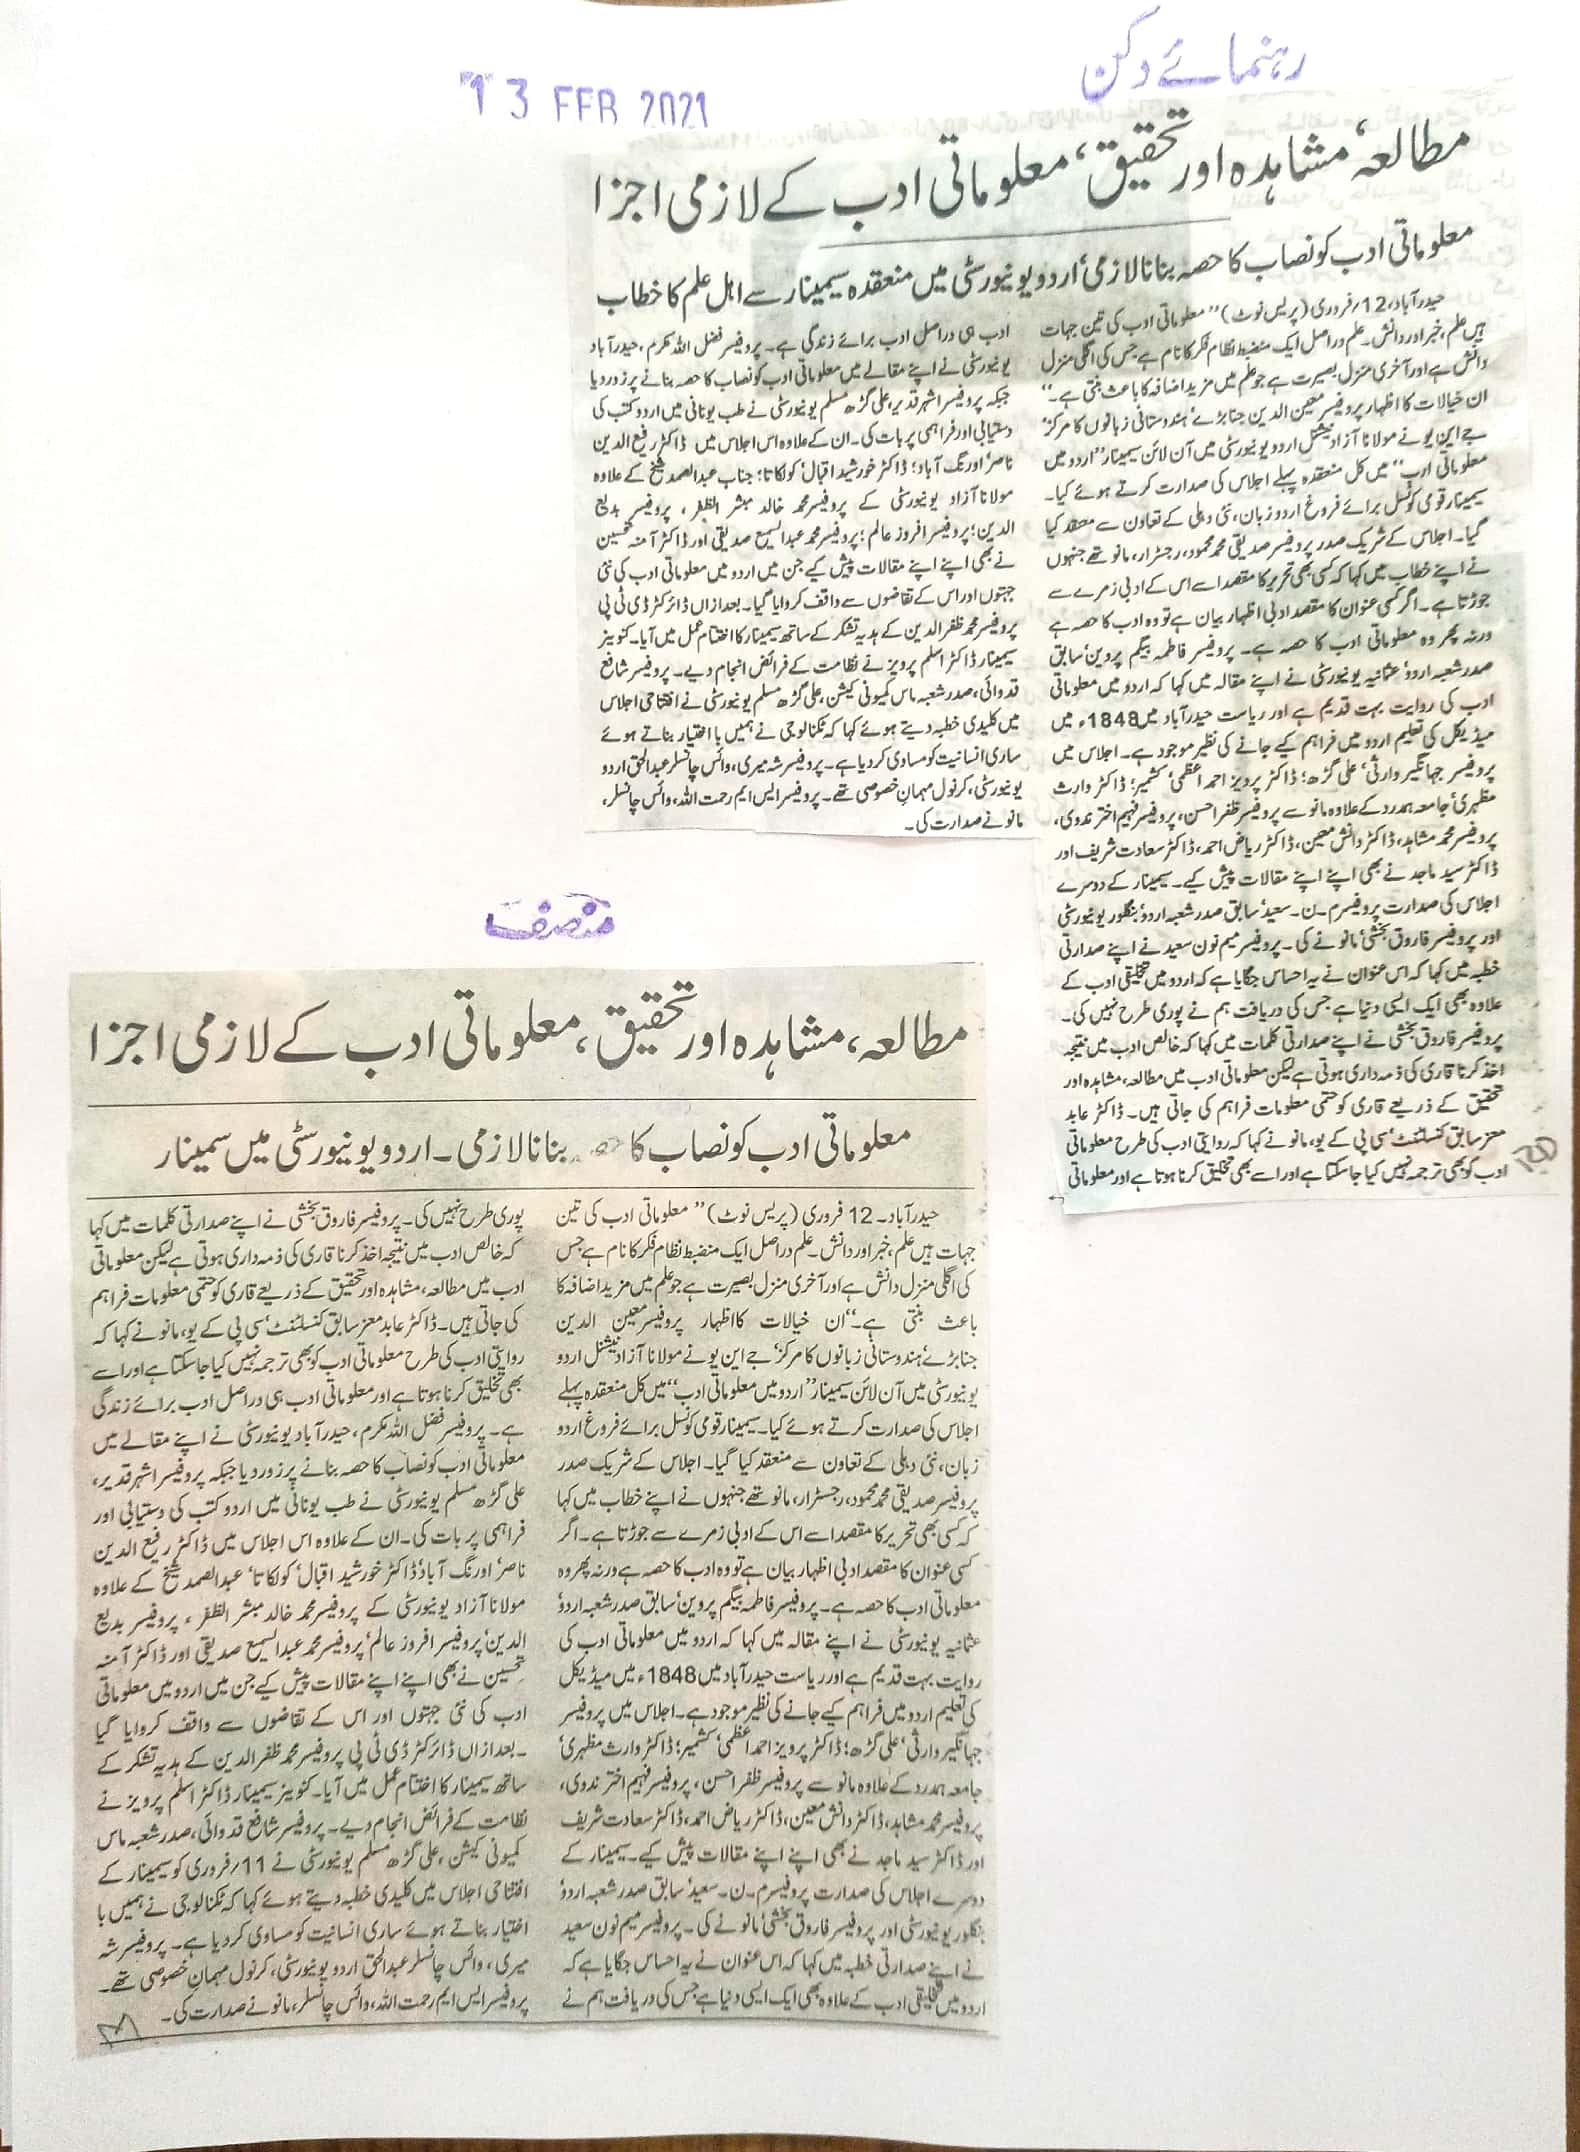 13 FEB 2021
رہنمائے دکن
مطالعہ، مشاہدہ اور تحقیق، معلوماتی ادب کے لازمی اجزا
معلوماتی ادب کو نصاب کا حصہ بنانا لازمی، اردو یونیورسٹی میں منعقدہ سیمینار سے اہل علم کا خطاب
حیدرآباد، 12/فروری (پریس نوٹ) ’’معلوماتی ادب کی تین جہات
ہیں علم، خبر اور دانش۔ علم دراصل ایک منضبط نظام فکر کا نام ہے جس کی اگلی منزل
دانش ہے اور آخری منزل بصیرت ہے جو علم میں مزید اضافہ کا باعث بنتی ہے۔‘‘
ان خیالات کا اظہار پروفیسر معین الدین جنابڑے، ہندوستانی زبانوں کا مرکز،
جے این یو نے مولانا آزاد نیشنل اردو یونیورسٹی میں آن لائن سیمینار ’’اردو میں
معلوماتی ادب‘‘ میں کل منعقدہ پہلے اجلاس کی صدارت کرتے ہوئے کیا۔
سیمینار قومی کونسل برائے فروغ اردو زبان، نئی دہلی کے تعاون سے منعقد کیا
گیا۔ اجلاس کے شریک صدر پروفیسر صدیقی محمد محمود، رجسٹرار، مانو تھے جنہوں
نے اپنے خطاب میں کہا کہ کسی بھی تحریر کا مقصد اسے اس کے ادبی زمرے سے
جوڑتا ہے۔ اگر کسی عنوان کا مقصد ادبی اظہار بیان ہے تو وہ ادب کا حصہ ہے
ورنہ پھر وہ معلوماتی ادب کا حصہ ہے۔ پروفیسر فاطمہ بیگم پروین، سابق
صدر شعبہ اردو، عثمانیہ یونیورسٹی نے اپنے مقالہ میں کہا کہ اردو میں معلوماتی
ادب کی روایت بہت قدیم ہے اور ریاست حیدرآباد میں 1848ء میں
میڈیکل کی تعلیم اردو میں فراہم کیے جانے کی نظیر موجود ہے۔ اجلاس میں
پروفیسر جہانگیر وارثی، علی گڑھ؛ ڈاکٹر پرویز احمد اعظمی، کشمیر؛ ڈاکٹر وارث
مظہری، جامعہ ہمدرد کے علاوہ مانو سے پروفیسر ظفر احسن، پروفیسر فہیم اختر ندوی،
پروفیسر محمد مشاہد، ڈاکٹر دانش معین، ڈاکٹر ریاض احمد، ڈاکٹر سعادت شریف اور
ڈاکٹر سید ماجد نے بھی اپنے اپنے مقالات پیش کیے۔ سیمینار کے دوسرے
اجلاس کی صدارت پروفیسر م۔ن۔ سعید، سابق صدر شعبہ اردو، بنگلور یونیورسٹی
اور پروفیسر فاروق بخشی، مانو نے کی۔ پروفیسر میم نون سعید نے اپنے صدارتی
خطبہ میں کہا کہ اس عنوان نے یہ احساس جگایا ہے کہ اردو میں تخلیقی ادب کے
علاوہ بھی ایک ایسی دنیا ہے جس کی دریافت ہم نے پوری طرح نہیں کی۔
پروفیسر فاروق بخشی نے اپنے صدارتی کلمات میں کہا کہ خالص ادب میں نتیجہ
اخذ کرنا قاری کی ذمہ داری ہوتی ہے لیکن معلوماتی ادب میں مطالعہ، مشاہدہ اور
تحقیق کے ذریعے قاری کو حتمی معلومات فراہم کی جاتی ہیں۔ ڈاکٹر عابد
معز سابق کنسلٹنٹ، سی پی کے یو، مانو نے کہا کہ روایتی ادب کی طرح معلوماتی
ادب کو بھی ترجمہ نہیں کیا جاسکتا ہے اور اسے بھی تخلیق کرنا ہوتا ہے اور معلوماتی
ادب ہی دراصل ادب برائے زندگی ہے۔ پروفیسر فضل اللہ مکرم، حیدرآباد
یونیورسٹی نے اپنے مقالے میں معلوماتی ادب کو نصاب کا حصہ بنانے پر زور دیا
جبکہ پروفیسر اشہر قدیر، علی گڑھ مسلم یونیورسٹی نے طب یونانی میں اردو کتب کی
دستیابی اور فراہمی پر بات کی۔ ان کے علاوہ اس اجلاس میں ڈاکٹر رفیع الدین
ناصر، اورنگ آباد؛ ڈاکٹر خورشید اقبال، کولکاتا؛ جناب عبدالصمد شیخ کے علاوہ
مولانا آزاد یونیورسٹی کے پروفیسر محمد خالد مبشر الظفر، پروفیسر بدیع
الدین؛ پروفیسر افروز عالم؛ پروفیسر محمد عبدالسمیع صدیقی اور ڈاکٹر آمنہ تحسین
نے بھی اپنے اپنے مقالات پیش کیے جن میں اردو میں معلوماتی ادب کی نئی
جہتوں اور اس کے تقاضوں سے واقف کروایا گیا۔ بعد ازاں ڈائرکٹر ڈی ٹی پی
پروفیسر محمد ظفرالدین کے ہدیہ تشکر کے ساتھ سیمینار کا اختتام عمل میں آیا۔ کنوینر
سیمینار ڈاکٹر اسلم پرویز نے نظامت کے فرائض انجام دیے۔ پروفیسر شافع
قدوائی، صدر شعبہ ماس کمیونی کیشن، علی گڑھ مسلم یونیورسٹی نے افتتاحی اجلاس
میں کلیدی خطبہ دیتے ہوئے کہا کہ ٹکنالوجی نے ہمیں با اختیار بناتے ہوئے
ساری انسانیت کو مساوی کر دیا ہے۔ پروفیسر شہ میری، وائس چانسلر عبدالحق اردو
یونیورسٹی، کرنول مہمان خصوصی تھے۔ پروفیسر ایس ایم رحمت اللہ، وائس چانسلر،
مانو نے صدارت کی۔
منصف
مطالعہ، مشاہدہ اور تحقیق، معلوماتی ادب کے لازمی اجزا
معلوماتی ادب کو نصاب کا حصہ بنانا لازمی۔ اردو یونیورسٹی میں سمینار
حیدرآباد۔ 12 فروری (پریس نوٹ) ’’معلوماتی ادب کی تین
جہات ہیں علم، خبر اور دانش۔ علم دراصل ایک منضبط نظام فکر کا نام ہے جس
کی اگلی منزل دانش ہے اور آخری منزل بصیرت ہے جو علم میں مزید اضافہ کا
باعث بنتی ہے۔‘‘ ان خیالات کا اظہار پروفیسر معین الدین
جنابڑے، ہندوستانی زبانوں کا مرکز، جے این یو نے مولانا آزاد نیشنل اردو
یونیورسٹی میں آن لائن سیمینار ’’اردو میں معلوماتی ادب‘‘ میں کل منعقدہ پہلے
اجلاس کی صدارت کرتے ہوئے کیا۔ سیمینار قومی کونسل برائے فروغ اردو
زبان، نئی دہلی کے تعاون سے منعقد کیا گیا۔ اجلاس کے شریک صدر
پروفیسر صدیقی محمد محمود، رجسٹرار، مانو تھے جنہوں نے اپنے خطاب میں کہا
کہ کسی بھی تحریر کا مقصد اسے اس کے ادبی زمرے سے جوڑتا ہے۔ اگر
کسی عنوان کا مقصد ادبی اظہار بیان ہے تو وہ ادب کا حصہ ہے ورنہ پھر وہ
معلوماتی ادب کا حصہ ہے۔ پروفیسر فاطمہ بیگم پروین، سابق صدر شعبہ اردو،
عثمانیہ یونیورسٹی نے اپنے مقالہ میں کہا کہ اردو میں معلوماتی ادب کی
روایت بہت قدیم ہے اور ریاست حیدرآباد میں 1848ء میں میڈیکل
کی تعلیم اردو میں فراہم کیے جانے کی نظیر موجود ہے۔ اجلاس میں پروفیسر
جہانگیر وارثی، علی گڑھ؛ ڈاکٹر پرویز احمد اعظمی، کشمیر؛ ڈاکٹر وارث مظہری،
جامعہ ہمدرد کے علاوہ مانو سے پروفیسر ظفر احسن، پروفیسر فہیم اختر ندوی،
پروفیسر محمد مشاہد، ڈاکٹر دانش معین، ڈاکٹر ریاض احمد، ڈاکٹر سعادت شریف
اور ڈاکٹر سید ماجد نے بھی اپنے اپنے مقالات پیش کیے۔ سیمینار کے
دوسرے اجلاس کی صدارت پروفیسر م۔ن۔ سعید، سابق صدر شعبہ اردو،
بنگلور یونیورسٹی اور پروفیسر فاروق بخشی، مانو نے کی۔ پروفیسر میم نون سعید
نے اپنے صدارتی خطبہ میں کہا کہ اس عنوان نے یہ احساس جگایا ہے کہ
اردو میں تخلیقی ادب کے علاوہ بھی ایک ایسی دنیا ہے جس کی دریافت ہم نے
پوری طرح نہیں کی۔ پروفیسر فاروق بخشی نے اپنے صدارتی کلمات میں کہا
کہ خالص ادب میں نتیجہ اخذ کرنا قاری کی ذمہ داری ہوتی ہے لیکن معلوماتی
ادب میں مطالعہ، مشاہدہ اور تحقیق کے ذریعے قاری کو حتمی معلومات فراہم
کی جاتی ہیں۔ ڈاکٹر عابد معز سابق کنسلٹنٹ، سی پی کے یو، مانو نے کہا کہ
روایتی ادب کی طرح معلوماتی ادب کو بھی ترجمہ نہیں کیا جاسکتا ہے اور اسے
بھی تخلیق کرنا ہوتا ہے اور معلوماتی ادب ہی دراصل ادب برائے زندگی
ہے۔ پروفیسر فضل اللہ مکرم، حیدرآباد یونیورسٹی نے اپنے مقالے میں
معلوماتی ادب کو نصاب کا حصہ بنانے پر زور دیا جبکہ پروفیسر اشہر قدیر،
علی گڑھ مسلم یونیورسٹی نے طب یونانی میں اردو کتب کی دستیابی اور
فراہمی پر بات کی۔ ان کے علاوہ اس اجلاس میں ڈاکٹر رفیع الدین
ناصر، اورنگ آباد، ڈاکٹر خورشید اقبال، کولکاتا، عبدالصمد شیخ کے علاوہ
مولانا آزاد یونیورسٹی کے پروفیسر محمد خالد مبشر الظفر، پروفیسر بدیع
الدین، پروفیسر افروز عالم، پروفیسر محمد عبدالسمیع صدیقی اور ڈاکٹر آمنہ
تحسین نے بھی اپنے اپنے مقالات پیش کیے جن میں اردو میں معلوماتی
ادب کی نئی جہتوں اور اس کے تقاضوں سے واقف کروایا گیا
۔ بعد ازاں ڈائرکٹر ڈی ٹی پی پروفیسر محمد ظفرالدین کے ہدیہ تشکر کے
ساتھ سیمینار کا اختتام عمل میں آیا۔ کنوینر سیمینار ڈاکٹر اسلم پرویز نے
نظامت کے فرائض انجام دیے۔ پروفیسر شافع قدوائی، صدر شعبہ ماس
کمیونی کیشن، علی گڑھ مسلم یونیورسٹی نے 11/فروری کو سیمینار کے
افتتاحی اجلاس میں کلیدی خطبہ دیتے ہوئے کہا کہ ٹکنالوجی نے ہمیں با
اختیار بناتے ہوئے ساری انسانیت کو مساوی کر دیا ہے۔ پروفیسر شہ
میری، وائس چانسلر عبدالحق اردو یونیورسٹی، کرنول مہمان خصوصی تھے۔
پروفیسر ایس ایم رحمت اللہ، وائس چانسلر، مانو نے صدارت کی۔